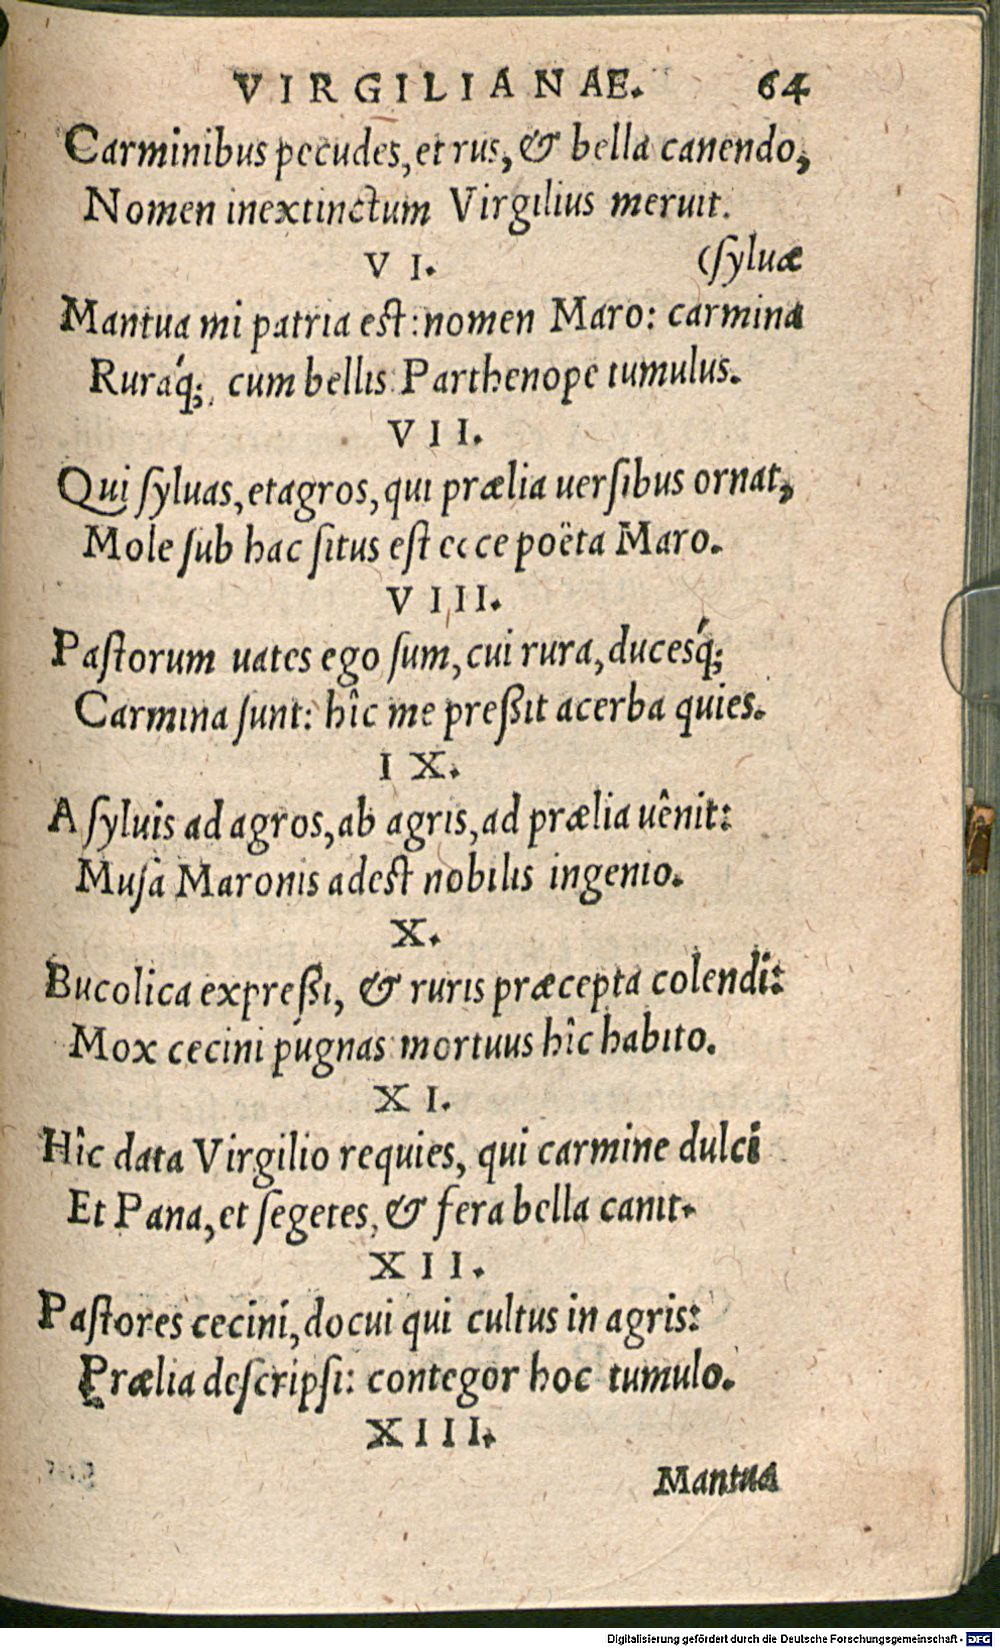 VIRGILIANAE. 64
Carminibus pecudes, et rus, & bella canendo,
Nomen inextinctum Virgilius meruit.
VI. (ſyluæ
Mantua mi patria eſt: nomen Maro: carmina
Ruraq́;, cum bellis: Parthenope tumulus.
VII.
Qui ſyluas, et agros, qui prælia uerſibus ornat,
Mole ſub hac ſitus eſt ecce poëta Maro.
VIII.
Paſtorum uates ego ſum, cui rura, duceſq́;
Carmina ſunt: hîc me preßit acerba quies.
IX.
A ſyluis ad agros, ab agris, ad prælia uênit:
Muſa Maronis adeſt nobilis ingenio.
X.
Bucolica expreßi, & ruris præcepta colendi:
Mox cecini pugnas: mortuus hîc habito.
XI.
Hîc data Virgilio requies, qui carmine dulci
Et Pana, et ſegetes, & fera bella canit.
XII.
Paſtores cecini, docui qui cultus in agris:
Prælia deſcripſi: contegor hoc tumulo.
XIII.
Mantua
Digitalisierung gefördert durch die Deutsche Forschungsgemeinschaft - DFG